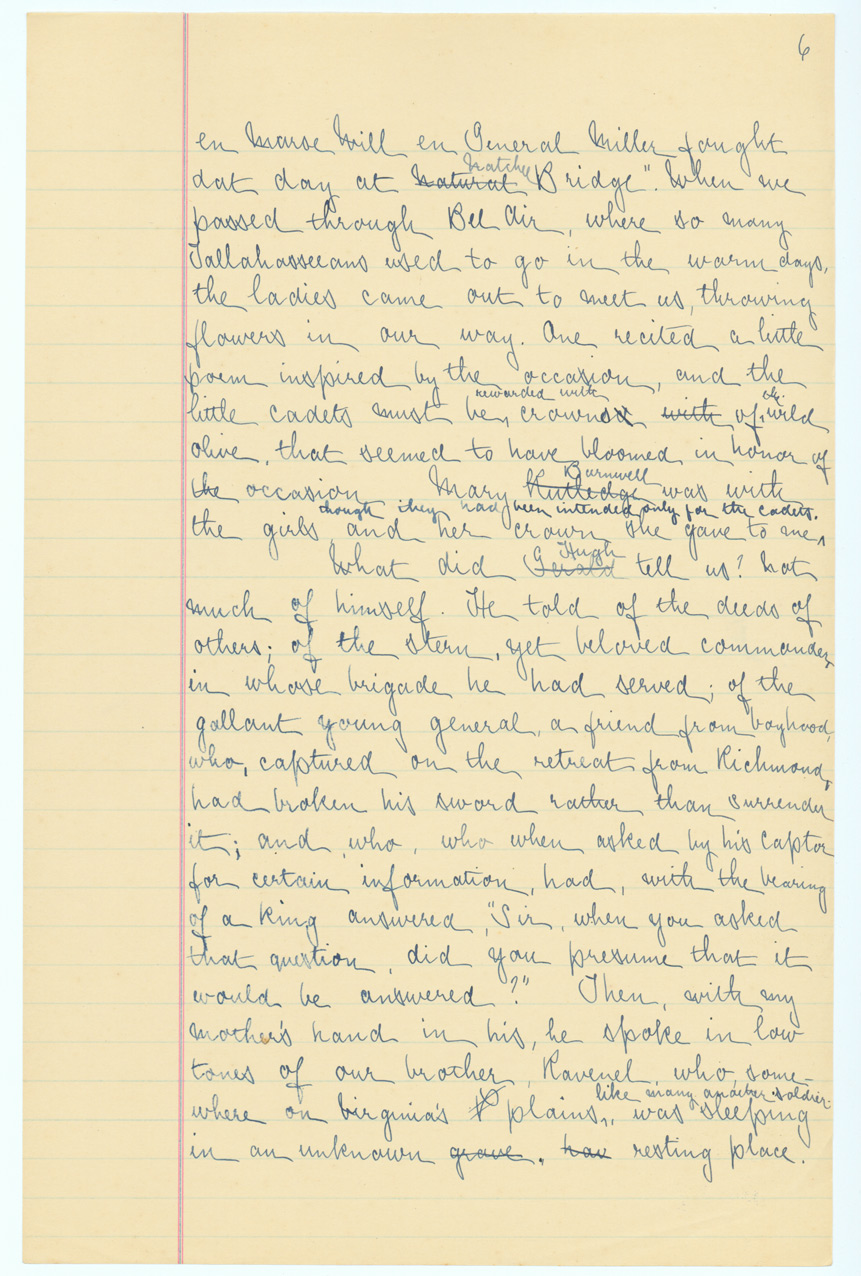 6
en Marse Will en General Miller fought
Natchel
dat day at Natural Bridge". When we
passed through Bel Air, where so many
Tallahasseeans used to go in the warm days,
the ladies came out to meet us, throwing
flowers in our way. One recited a little
poem inspired by the occasion, and the
rewarded with
little cadets must be, crowned with of, wild
olive, that seemed to have bloomed in honor of
the occasion Mary Rutledge was with
Barnwell
though they had been intended only for the cadets.
the girls, and her crown she gave to me,
Hugh
What did Gerald tell us? Not
much of himself. He told of the deeds of
others; of the stern, yet beloved commander,
in whose brigade he had served; of the
gallant young general, a friend from boyhood,
who, captured on the retreat from Richmond,
had broken his sword rather than surrender
it; and who, who when asked by his captor
for certain information, had, with the bearing
of a king answered, "Sir, when you asked
that question, did you presume that it
would be answered?" Then, with my
mother's hand in his, he spoke in low
tones of our brother, Ravenel, who, some-
like many another soldier.
where on Virginia's plains, was sleeping
in an unknown grave, hav resting place.